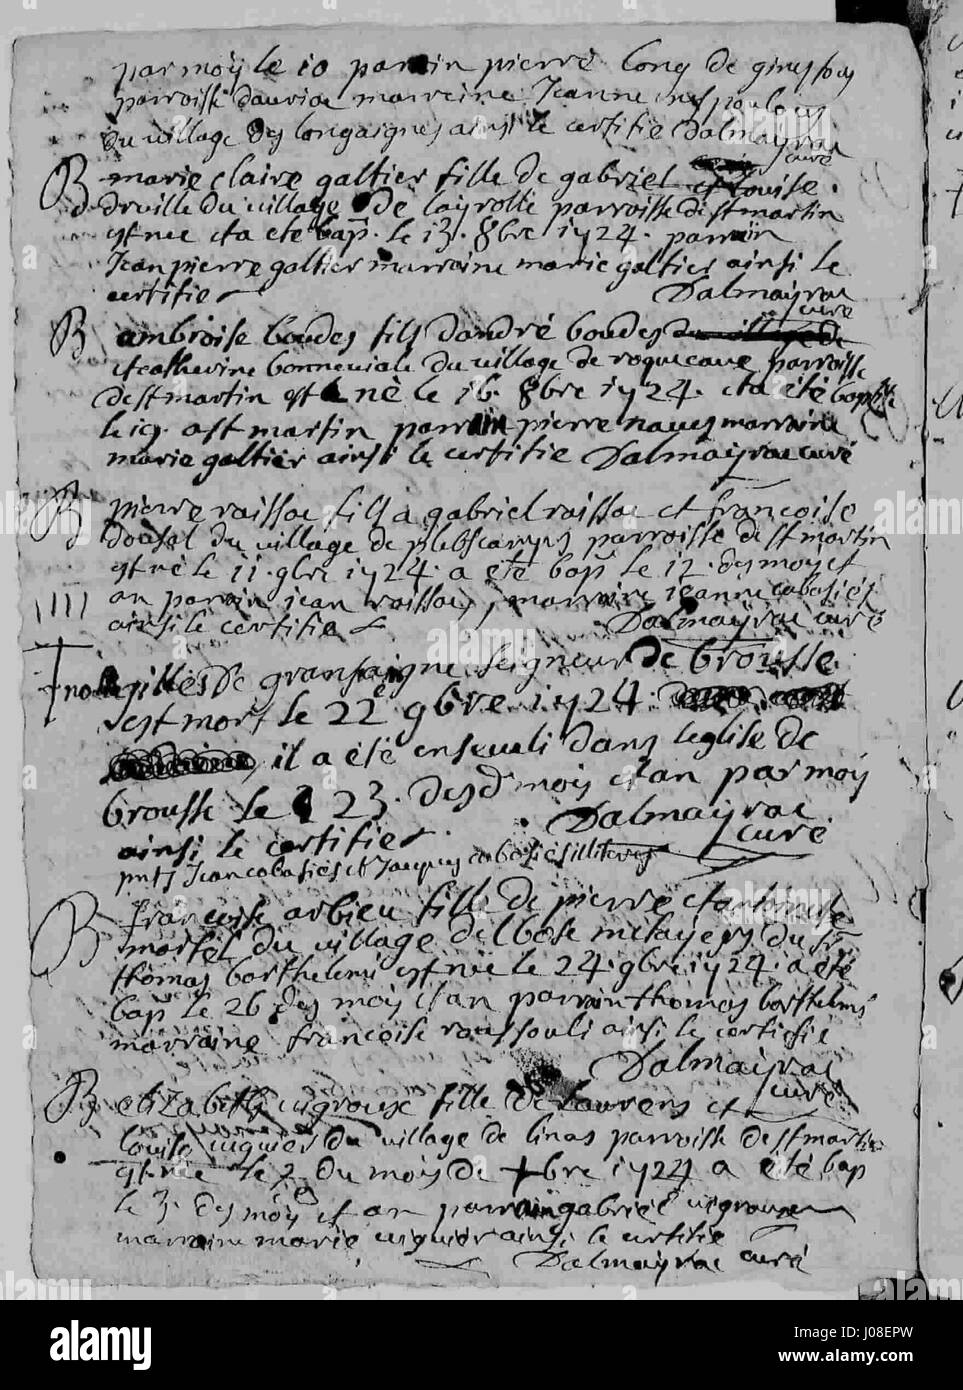 par moÿ le 10 parrin pierre Conq de
parroisse dauriac marreine Jeanne
du village des longaignes ainsi le certifie Dalmayrac
curé
B marie claire galtier fille de gabriel et Louise
druille du village de layrolle parroisse de st martin
est nee et a eté bap. le 13. 8bre 1724. parrain
Jean pierre galtier marraine marie galtier ainsi le
certifie Dalmayrac
curé
B ambroise boudes fils dandré boudes du village de
et catherine bonneviale du village de roquecave parroisse
de st martin est né le 16. 8bre 1724. et a eté
le 19. a st martin parrain pierre naves marraine
marie galtier ainsi le certifie Dalmayrac curé
B pierre raissac fils a gabriel raissac et françoise
du village de parroisse de st martin
est né le 11. 9bre 1724. a eté bap. le 12. des moy et
an parrain jean raissac, marraine jeanne cabasiés
ainsi le certifie Dalmayrac curé
noble gilles De gransaigne seigneur de brousse
est mort le 22e 9bre 1724.
il a eté enseveli dans leglise de
brousse le 23. desd. moy et an par moy
ainsi le certifie Dalmayrac
curé
pnts Jean cabasiés et Jacques cabasiés illiterés
B françoise arbieu fille de pierre et antoinete
martel du village del bosc metayers du sr
thomas barthelemi est née le 24. 9bre 1724. a eté
bap. le 26 des moy et an parrain thomas barthelemi
marraine françoise raussouli ainsi le certifie
Dalmayrac
curé
B elizabeth vigroux fille de Laurens et
Louise viguier du village de linas parroisse de st martin
est née le 2 du moys de Xbre 1724 a eté bap
le 3. des moy et an parrain gabriel vigroux
marraine marie viguier ainsi le certifie
Dalmayrac curé
alamy
alamy
Image ID: J08EPW
www.alamy.com